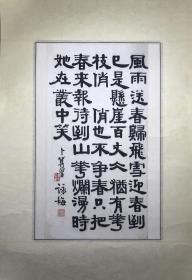 風雨送春歸飛雪迎春到
已是懸崖百丈冰猶有花
枝俏俏也不爭春只把
春來報待到山花爛漫時
她在叢中笑
卜算子
詠梅